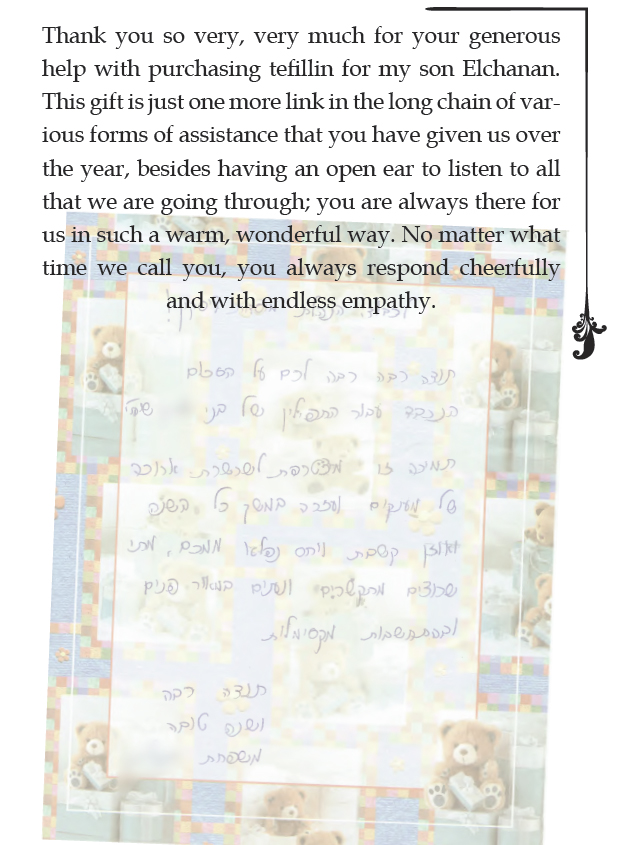 Thank you so very, very much for your generous
help with purchasing tefillin for my son Elchanan.
This gift is just one more link in the long chain of var-
ious forms of assistance that you have given us over
the year, besides having an open ear to listen to all
that we are going through; you are always there for
us in such a warm, wonderful way. No matter what
time we call you, you always respond cheerfully
and with endless empathy.
תודה רבה רבה לכם על הסכום
הנכבד עבור התפילין של בני
תמיכה זו מצטרפת לשרשרת ארוכה
של מענקים ועזרה במשך כל השנה
ואוזן קשבת ויחס נפלא ממכם, מתי
שרוצים מתקשרים ונענים במאור פנים
ובהתחשבות מקסימלית
תודה רבה
ושנה טובה
משפחת